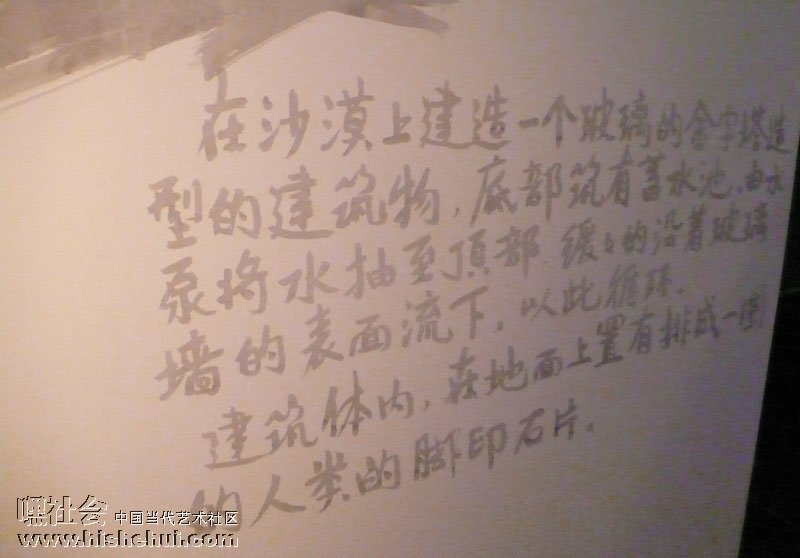 在沙漠上建造一个玻璃的金字塔造
型的建筑物,底部筑有蓄水池。由水
泵将水抽至顶部 缓々的沿着玻璃
墙的表面流下,以此循环.
建筑体内,在地面上置有排成一圈
的人类的脚印石片.
嘿社会 中国当代艺术社区
www.hishehui.com